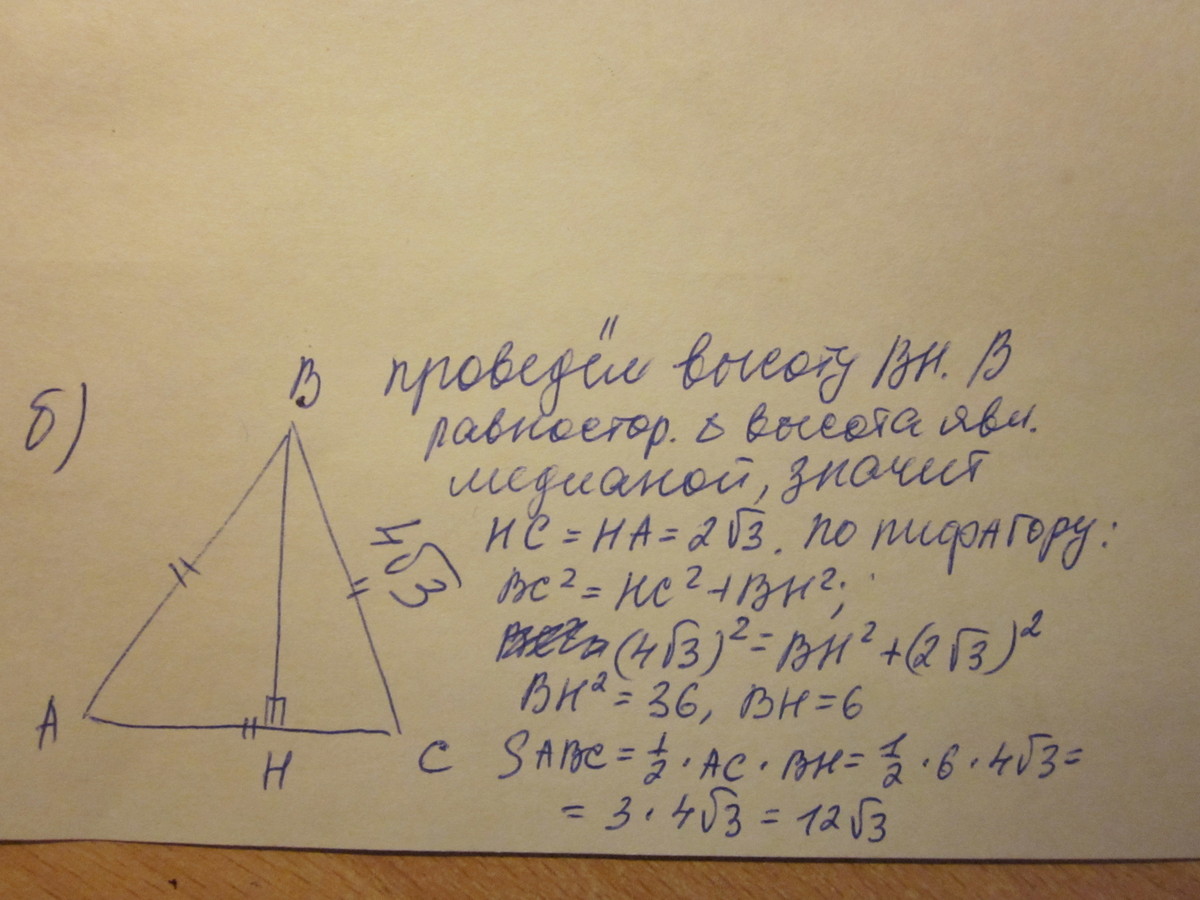 б)
B
A
H
C
4√3
проведём высоту BH. В
равностор. Δ высота явл.
медианой, значит
HC = HA = 2√3. По пифагору:
BC² = HC² + BH²;
(4√3)² = BH² + (2√3)²
BH² = 36, BH = 6
SABC = 1/2 · AC · BH = 1/2 · 6 · 4√3 =
= 3 · 4√3 = 12√3